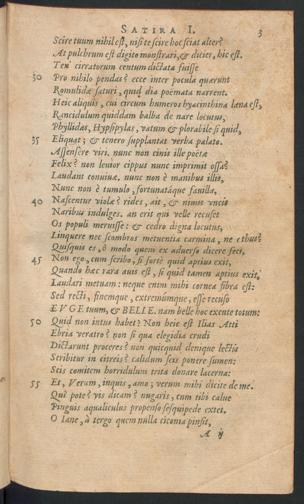 SATIRA I. 3
Scire tuum nihil est, nisi te scire hoc sciat alter?
At pulchrum est digito monstrari, & dicier, hic est.
Ten' cirratorum centum dictata fuisse
30 Pro nihilo pendas? ecce inter pocula quærunt
Romulidæ saturi, quid dia poëmata narrent.
Heic aliquis, cui circum humeros hyacinthina læna est,
Rancidulum quiddam balba de nare locutus,
Phyllidas, Hypsipylas, vatum & plorabile si quid,
35 Eliquat; & tenero supplantat verba palato.
Assensere viri. nunc non cinis ille poëtæ
Felix? non levior cippus nunc imprimit ossa?
Laudant convivæ, nunc non è manibus illis,
Nunc non è tumulo, fortunatáque favilla,
40 Nascentur violæ? rides, ait, & nimis uncis
Naribus indulges. an erit qui velle recuset
Os populi meruisse: & cedro digna locutus,
Linquere nec scombros metuentia carmina, nec thus?
Quisquis es, ô modo quem ex adverso dicere feci,
45 Non ego, cum scribo, si fortè quid aptius exit,
Quando hæc rara avis est, si quid tamen aptius exit,
Laudari metuam: neque enim mihi cornea fibra est:
Sed recti, finemque, extremúmque, esse recuso
EVGE tuum, & BELLE. nam belle hoc excute totum:
50 Quid non intus habet? Non heic est Ilias Atti
Ebria veratro? non si qua elegidia crudi
Dictarunt proceres? non quicquid denique lectis
Scribitur in citreis? calidum scis ponere sumen:
Scis comitem horridulum trita donare lacerna:
55 Et, Verum, inquis, amo; verum mihi dicite de me.
Quî pote? vis dicam? nugaris, cum tibi calve
Pinguis aqualiculus propenso sesquipede extet.
O Iane, à tergo quem nulla ciconia pinsit,
A ij